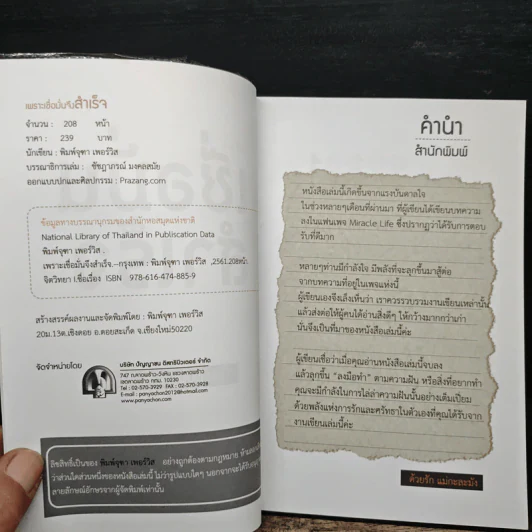 เพราะเชื่อมั่นจึงสำเร็จ
จำนวน : 208 หน้า
ราคา : 239 บาท
นักเขียน : พิมพ์จุฑา เพอร์วิส
บรรณาธิการเล่ม : ชัชฎาภรณ์ มงคลสมัย
ออกแบบปกและศิลปกรรม : Prazang.com
ข้อมูลทางบรรณานุกรมของสำนักหอสมุดแห่งชาติ
National Library of Thailand in Publiscation Data
พิมพ์จุฑา เพอร์วิส .
เพราะเชื่อมั่นจึงสำเร็จ.--กรุงเทพ : พิมพ์จุฑา เพอร์วิส ,2561.208หน้า
จิตวิทยา I.ชื่อเรื่อง ISBN 978-616-474-885-9
สร้างสรรค์ผลงานและจัดพิมพ์โดย : พิมพ์จุฑา เพอร์วิส
20ม.13ต.เชิงดอย อ.ดอยสะเก็ด จ.เชียงใหม่50220
จัดจำหน่ายโดย
บริษัท ปัญญาชน ดิสทริบิวเตอร์ จำกัด
เขตลาดพร้าว กทม. 10230
TEL : 02-570-3929 FAX : 02-570-3928
E-mail : panyachon2012@hotmail.com
www : panyachon.com
ลิขสิทธิ์เป็นของ พิมพ์จุฑา เพอร์วิส อย่างถูกต้องตามกฎหมาย
ว่าส่วนใดส่วนหนึ่งของหนังสือเล่มนี้ ไม่ว่ารูปแบบใดๆ นอกจากจะได้รับ
ลายลักษณ์อักษรจากผู้จัดพิมพ์เท่านั้น
คำนำ
สำนักพิมพ์
หนังสือเล่มนี้เกิดขึ้นจากแรงบันดาลใจ
ในช่วงหลายๆเดือนที่ผ่านมา ที่ผู้เขียนได้เขียนบทความ
ลงในแฟนเพจ Miracle Life ซึ่งปรากฏว่าได้รับการตอบ
รับที่ดีมาก
หลายๆท่านมีกำลังใจ มีพลังที่จะลุกขึ้นมาสู้ต่อ
จากบทความที่อยู่ในเพจแห่งนี้
ผู้เขียนเองจึงเล็งเห็นว่า เราควรรวบรวมงานเขียนเหล่านั้น
แล้วส่งต่อให้ผู้คนได้อ่านสิ่งดีๆ ให้กว้างมากกว่าเก่า
นั่นจึงเป็นที่มาของหนังสือเล่มนี้ค่ะ
ผู้เขียนเชื่อว่าเมื่อคุณอ่านหนังสือเล่มนี้จบลง
แล้วลุกขึ้น "ลงมือทำ" ตามความฝัน หรือสิ่งที่อยากทำ
คุณจะมีกำลังในการไล่ล่าความฝันนั้นอย่างเต็มเปี่ยม
ด้วยพลังแห่งการรักและศรัทธาในตัวเองที่คุณได้รับจาก
งานเขียนเล่มนี้ค่ะ
ด้วยรัก แม่กะละมัง